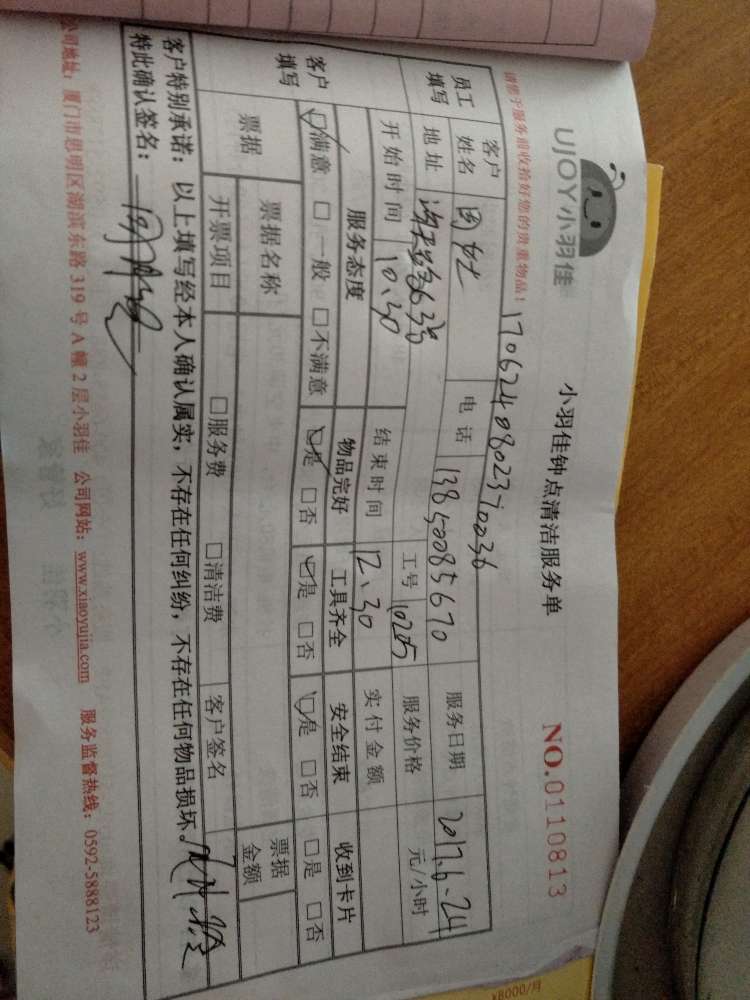 UJOY小羽佳
小羽佳钟点清洁服务单
NO.0110813
请您于服务前收拾好您的贵重物品！
1706240802370036
员工填写 客户姓名 电话 13850085670 服务日期 2017.6.24
地址 工号 服务价格 元/小时
开始时间 10.30 结束时间 12.30 实付金额
客户填写 服务态度 物品完好 工具齐全 安全结束 收到卡片
☑满意 □一般 □不满意 ☑是 □否 ☑是 □否 ☑是 □否 □是 □否
票据 票据名称 票据金额
开票项目 □服务费 □清洁费 客户签名
客户特别承诺：以上填写经本人确认属实，不存在任何纠纷，不存在任何物品损坏。
特此确认签名：
公司地址：厦门市思明区湖滨东路319号A幢2层小羽佳 公司网站：www.xiaoyujia.com 服务监督热线：0592-5888123
¥8000/月